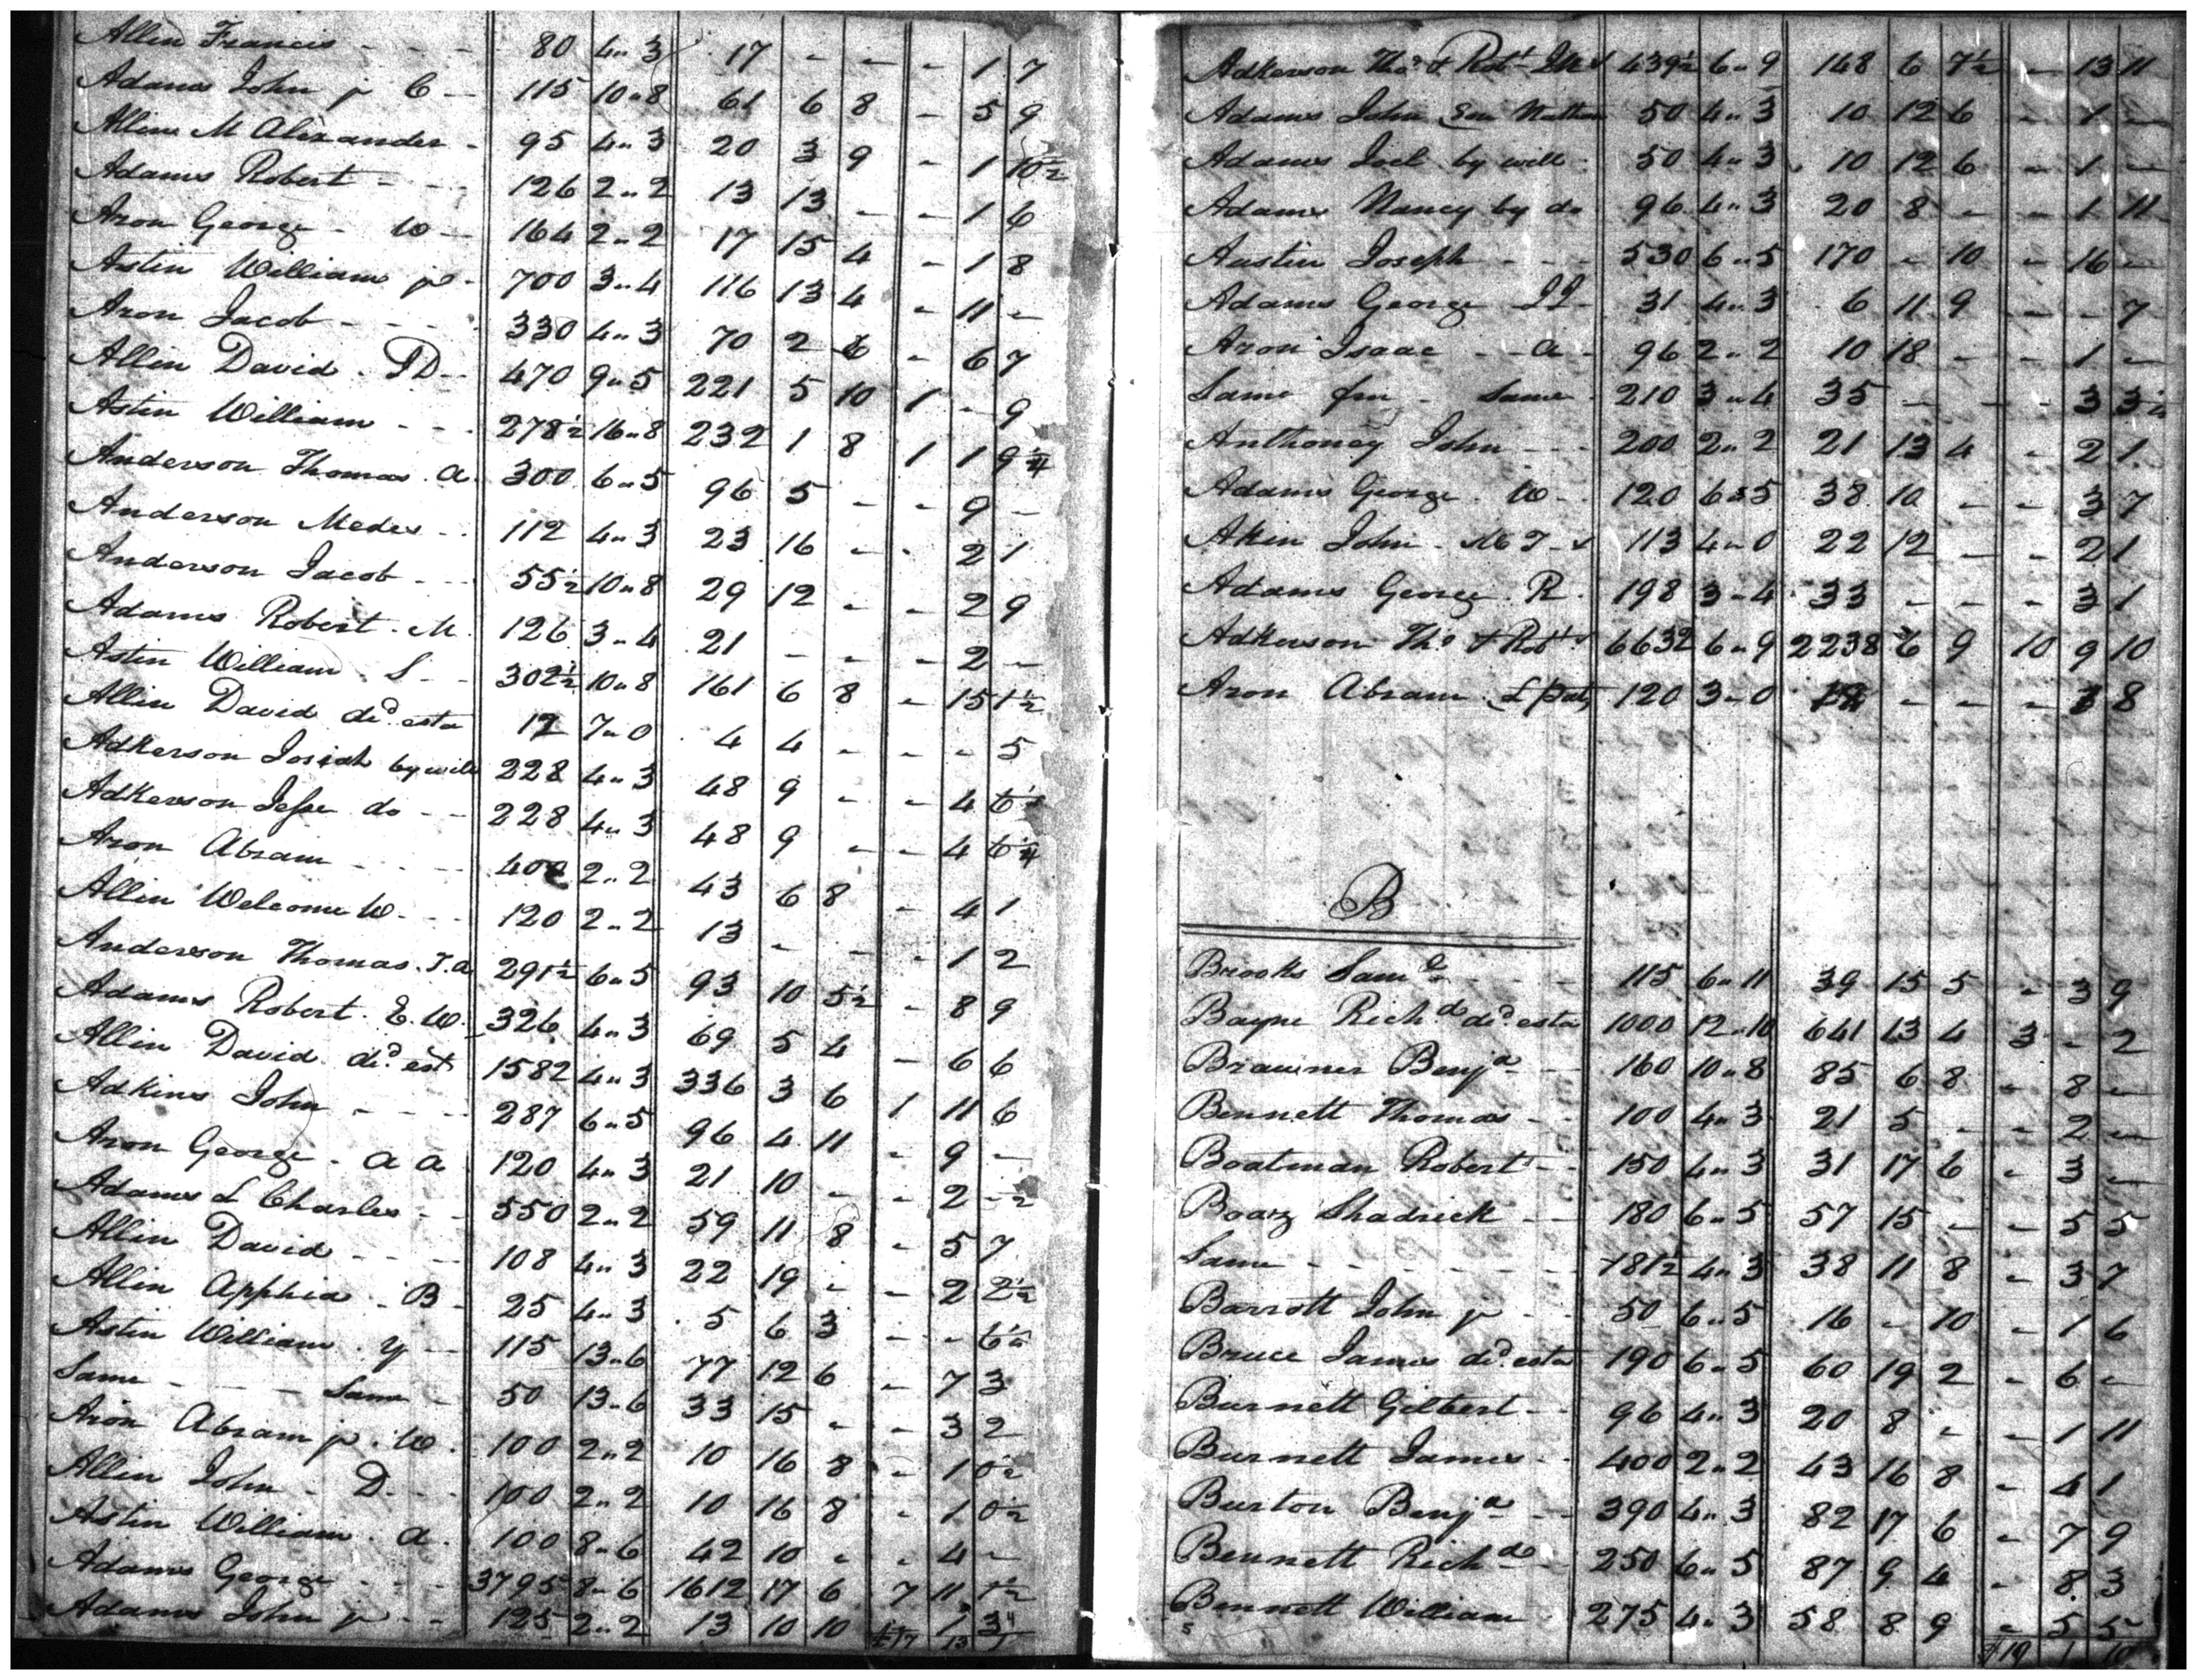 Allin Francis - - - 80 4 " 3 17 - - - 1 7
Adams John jr C - 115 10 " 8 61 6 8 - 5 9
Allin M Alexander - 95 4 " 3 20 3 9 - 1 10½
Adams Robert - - - 126 2 " 2 13 13 - - 1 6
Aron George - W - 164 2 " 2 17 15 4 - 1 8
Astin William jr - 700 3 " 4 116 13 4 - 11 -
Aron Jacob - - - 330 4 " 3 70 2 6 - 6 7
Allin David - TD - 470 9 " 5 221 5 10 1 - 9
Astin William - - - 278½ 16 " 8 232 1 8 1 1 9¼
Anderson Thomas . A 300 6 " 5 96 5 - - 9 -
Anderson Medes - - 112 4 " 3 23 16 - - 2 1
Anderson Jacob - - 55½ 10 " 8 29 12 - - 2 9
Adams Robert . M 126 3 " 4 21 - - - 2 -
Astin William . S - 302½ 10 " 8 161 6 8 - 15 1½
Allin David decd. esta 12 7 " 0 4 4 - - - 5
Adkerson Josiah by will 228 4 " 3 48 9 - - 4 6
Adkerson Jesse do - - 228 4 " 3 48 9 - - 4 6¼
Aron Abram - - - 400 2 " 2 43 6 8 - 4 1
Allin Welcome W - - 120 2 " 2 13 - - - 1 2
Anderson Thomas . T.A 291½ 6 " 5 93 10 5½ - 8 9
Adams Robert . E. W. 326 4 " 3 69 5 4 - 6 6
Allin David decd. est 1582 4 " 3 336 3 6 1 11 6
Adkins John - - - 287 6 " 5 96 4 11 - 9 -
Aron George - A A 120 4 " 3 21 10 - - 2 -
Adams L Charles - - 550 2 " 2 59 11 8 - 5 7
Allin David - - - 108 4 " 3 22 19 - - 2 2½
Allin Apphia - B - 25 4 " 3 5 6 3 - - 6
Astin William . Y - 115 13 " 6 77 12 6 - 7 3
Same - - - Same - 50 13 " 6 33 15 - - 3 2
Aron Abram jr . W . 100 2 " 2 10 16 8 - 1 0½
Allin John - D - - 100 2 " 2 10 16 8 - 1 0½
Astin William . A . 100 8 " 6 42 10 - - 4 -
Adams George - - - 3795 8 " 6 1612 17 6 7 11 1½
Adams John jr - - 125 2 " 2 13 10 10 1 3
Adkerson Thos. & Robt. 439½ 6 " 9 148 6 7½ - 13 11
Adams John Son Nathan 50 4 " 3 10 12 6 - 1 -
Adams Joel by will - 50 4 " 3 10 12 6 - 1 -
Adams Nancy by do 96 4 " 3 20 8 - - 1 11
Austin Joseph - - - 530 6 " 5 170 - 10 - 16 -
Adams George JJ - 31 4 " 3 6 11 9 - - 7
Aron Isaac - - A - 96 2 " 2 10 18 - - 1 -
Same frm - Same - 210 3 " 4 35 - - - 3 3½
Anthoney John - - - 200 2 " 2 21 13 4 - 2 1
Adams George . W - 120 6 " 5 38 10 - - 3 7
Akin John - Mc T - 113 4 " 0 22 12 - - 2 1
Adams George . R . 198 3 " 4 33 - - - 3 1
Adkerson Thos. & Robt. 6632 6 " 9 2238 6 9 10 9 10
Aron Abram . 120 3 " 0 18 - - - 3 8
B
Brooks Saml. - - - 115 6 " 11 39 15 5 - 3 9
Bayne Richd. decd. esta 1000 12 " 10 641 13 4 3 - 2
Brawner Benja - - 160 10 " 8 85 6 8 - 8 -
Bennett Thomas - - 100 4 " 3 21 5 - - 2 -
Boatman Robert - - 150 4 " 3 31 17 6 - 3 -
Boaz Shadrick - - 180 6 " 5 57 15 - - 5 5
Same - - - - - - 181½ 4 " 3 38 11 8 - 3 7
Barrott John jr - - 50 6 " 5 16 - 10 - 1 6
Bruce James decd. esta 190 6 " 5 60 19 2 - 6 -
Burnett Gilbert - - 96 4 " 3 20 8 - - 1 11
Burnett James - - 400 2 " 2 43 16 8 - 4 1
Burton Benja - - 390 4 " 3 82 17 6 - 7 9
Bennett Richd. - - 250 6 " 5 87 9 4 - 8 3
Bennett William - 275 4 " 3 58 8 9 - 5 5